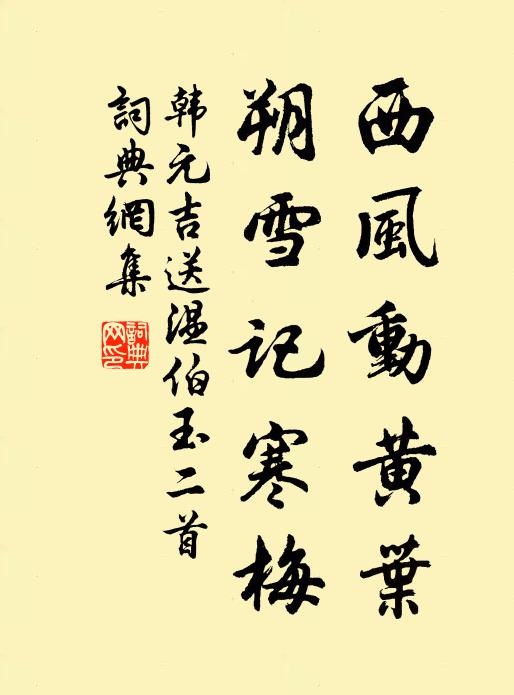 西風動黄葉
朔雪记寒梅
韩元吉送温伯玉二首
詞典網集
詞典网印